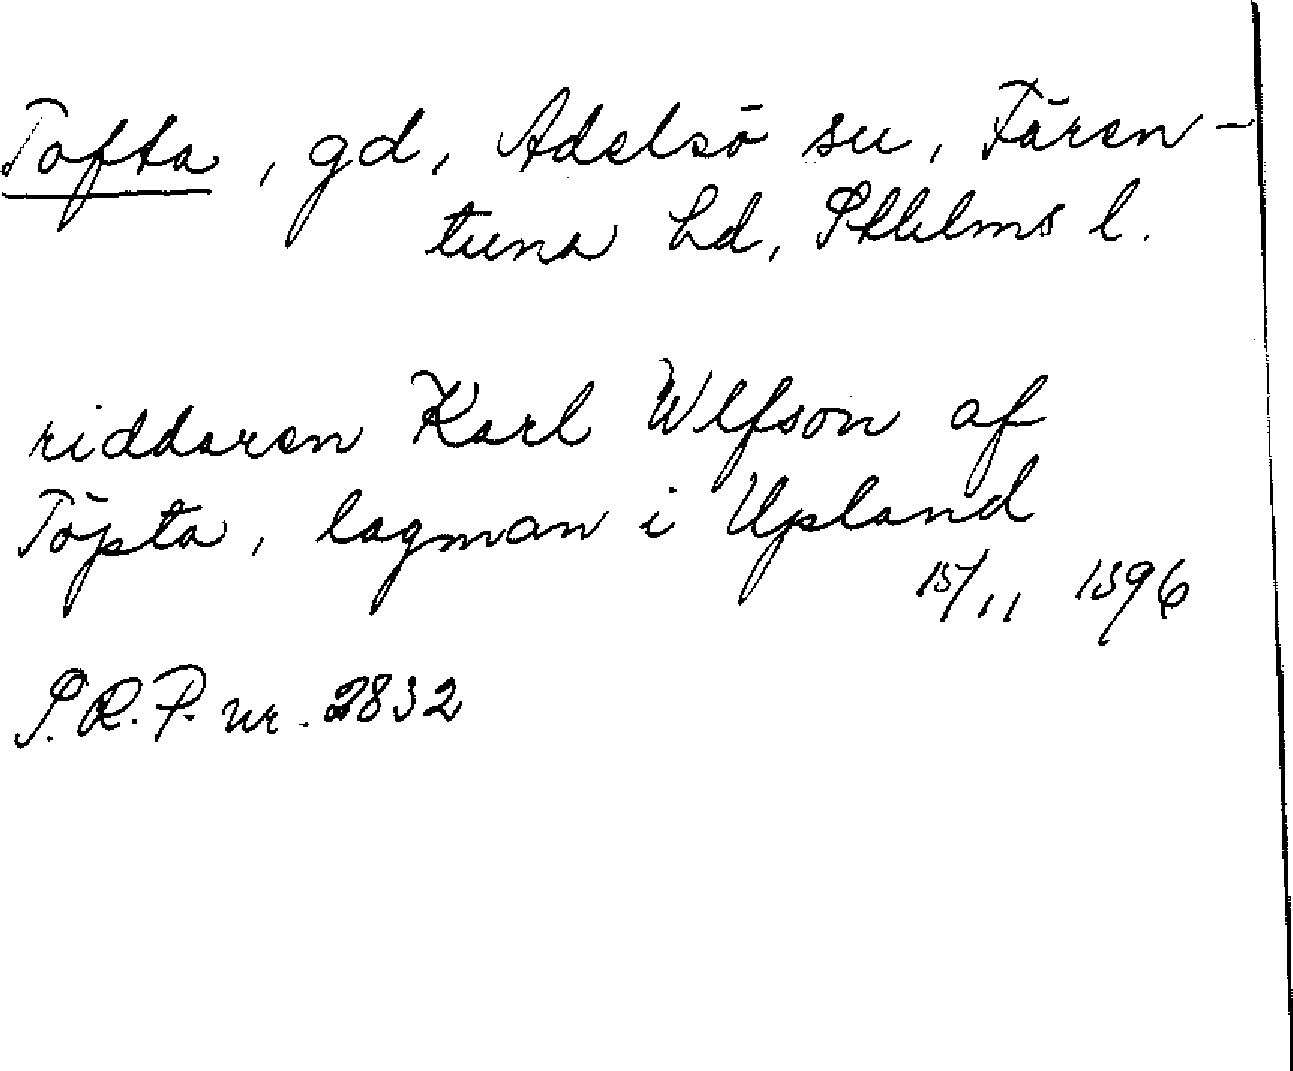 Tofta, gd, Adelsö sn, Fären-
tuna hd, Sthlms l.
riddaren Karl Wlfson af
Töpta, lagman i Upland
15/11 1396
S.R.P. nr. 2832